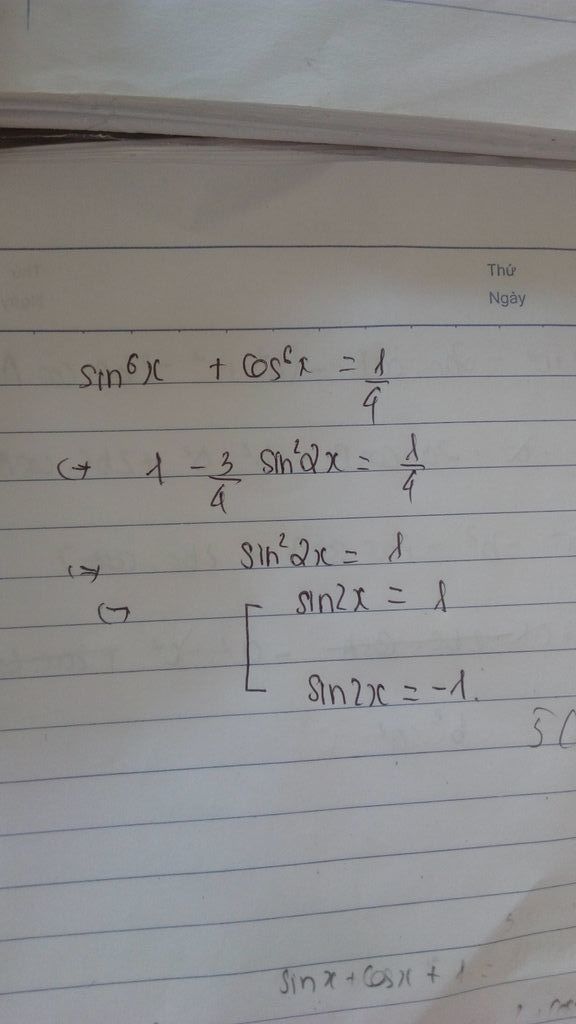 Thứ
Ngày
sin⁶x + cos⁶x = 1/4
<=> 1 - 3/4 sin²2x = 1/4
<=> sin²2x = 1
<=> [ sin2x = 1
sin2x = -1.
sinx + cosx + 1